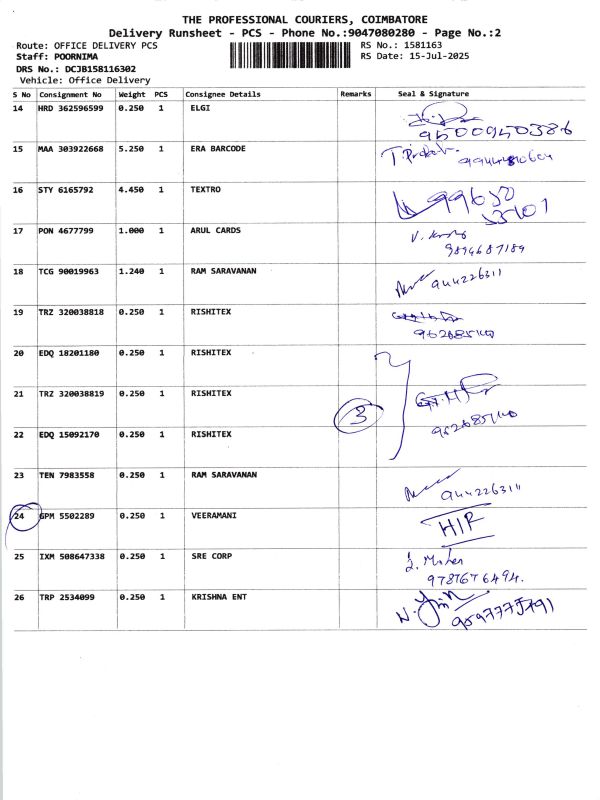 THE PROFESSIONAL COURIERS, COIMBATORE
Delivery Runsheet - PCS - Phone No.:9047080280 - Page No.:2
Route: OFFICE DELIVERY PCS RS No.: 1581163
Staff: POORNIMA RS Date: 15-Jul-2025
DRS No.: DCJB158116302
Vehicle: Office Delivery
S No Consignment No Weight PCS Consignee Details Remarks Seal & Signature
14 HRD 362596599 0.250 1 ELGI
9500950386
15 MAA 303922668 5.250 1 ERA BARCODE
16 STY 6165792 4.450 1 TEXTRO
17 PON 4677799 1.000 1 ARUL CARDS
9894687189
18 TCG 90019963 1.240 1 RAM SARAVANAN
19 TRZ 320038818 0.250 1 RISHITEX
20 EDQ 18201180 0.250 1 RISHITEX
21 TRZ 320038819 0.250 1 RISHITEX
3
22 EDQ 15092170 0.250 1 RISHITEX
23 TEN 7983558 0.250 1 RAM SARAVANAN
24 GPM 5502289 0.250 1 VEERAMANI
HIR
25 IXM 508647338 0.250 1 SRE CORP
9787676494.
26 TRP 2534099 0.250 1 KRISHNA ENT